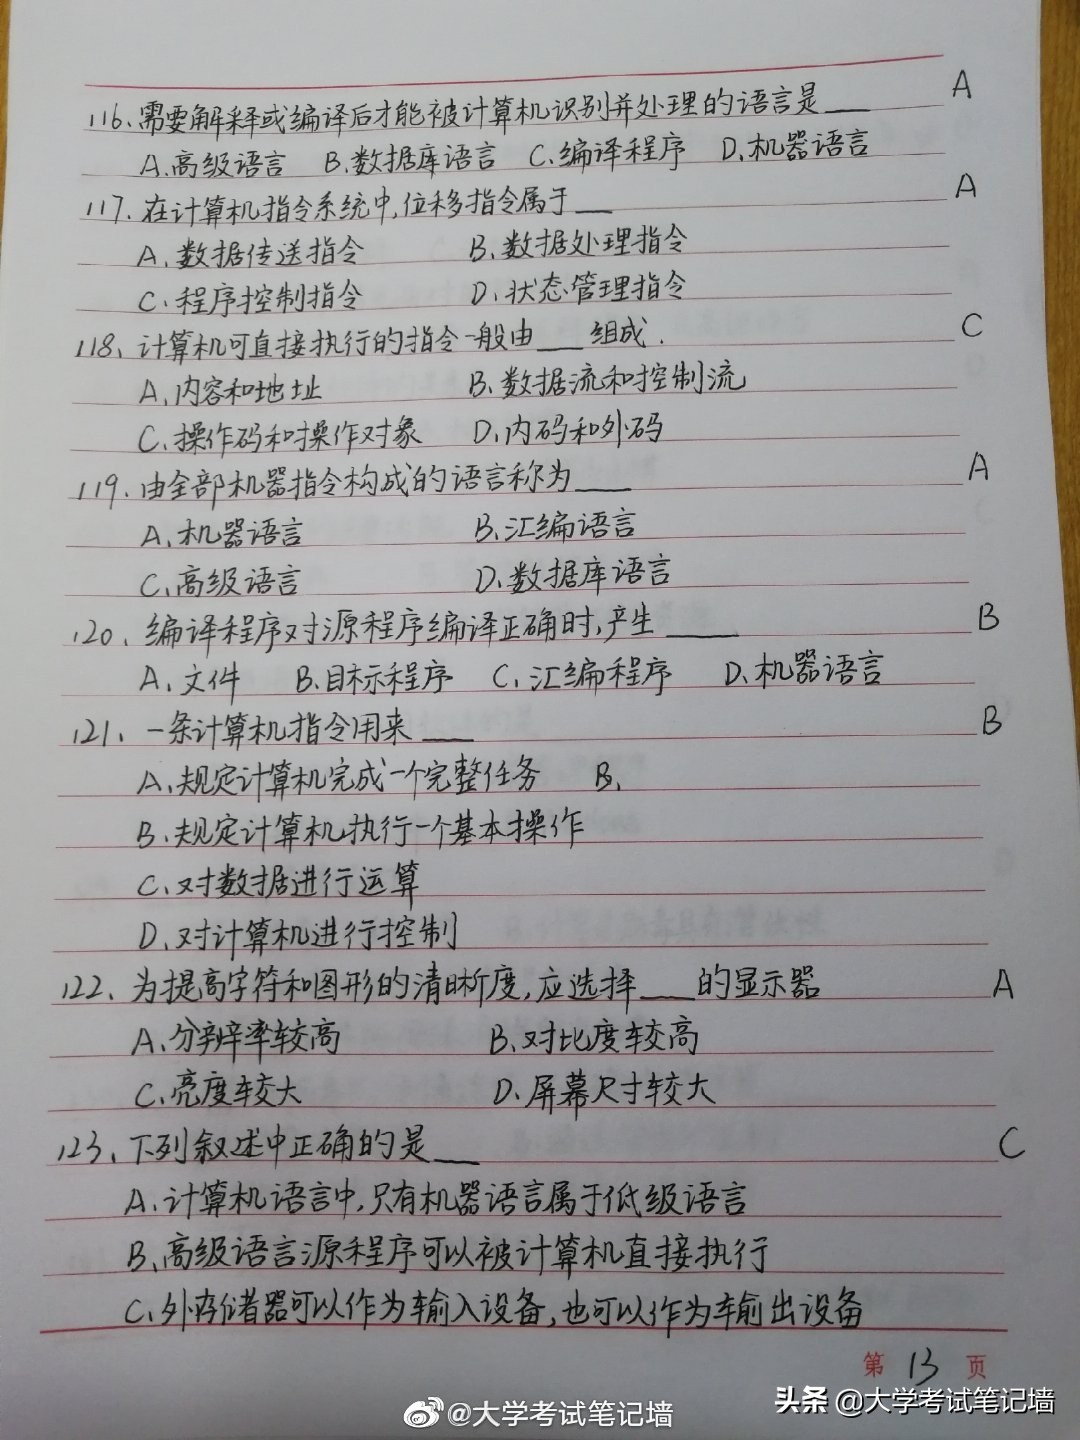 116、需要解释或编译后才能被计算机识别并处理的语言是___ A
A.高级语言 B.数据库语言 C.编译程序 D.机器语言
117、在计算机指令系统中,位移指令属于___ A
A、数据传送指令 B、数据处理指令
C、程序控制指令 D、状态管理指令
118、计算机可直接执行的指令一般由___组成. C
A、内容和地址 B、数据流和控制流
C、操作码和操作对象 D、内码和外码
119、由全部机器指令构成的语言称为___ A
A、机器语言 B、汇编语言
C、高级语言 D、数据库语言
120、编译程序对源程序编译正确时,产生___ B
A、文件 B.目标程序 C、汇编程序 D、机器语言
121、一条计算机指令用来___ B
A、规定计算机完成一个完整任务 B、
B、规定计算机执行一个基本操作
C、对数据进行运算
D、对计算机进行控制
122、为提高字符和图形的清晰度,应选择___的显示器 A
A、分辨率较高 B、对比度较高
C、亮度较大 D、屏幕尺寸较大
123、下列叙述中正确的是___ C
A、计算机语言中,只有机器语言属于低级语言
B、高级语言源程序可以被计算机直接执行
C、外存储器可以作为输入设备,也可以作为输出设备
第 13 页
@大学考试笔记墙
头条 @大学考试笔记墙